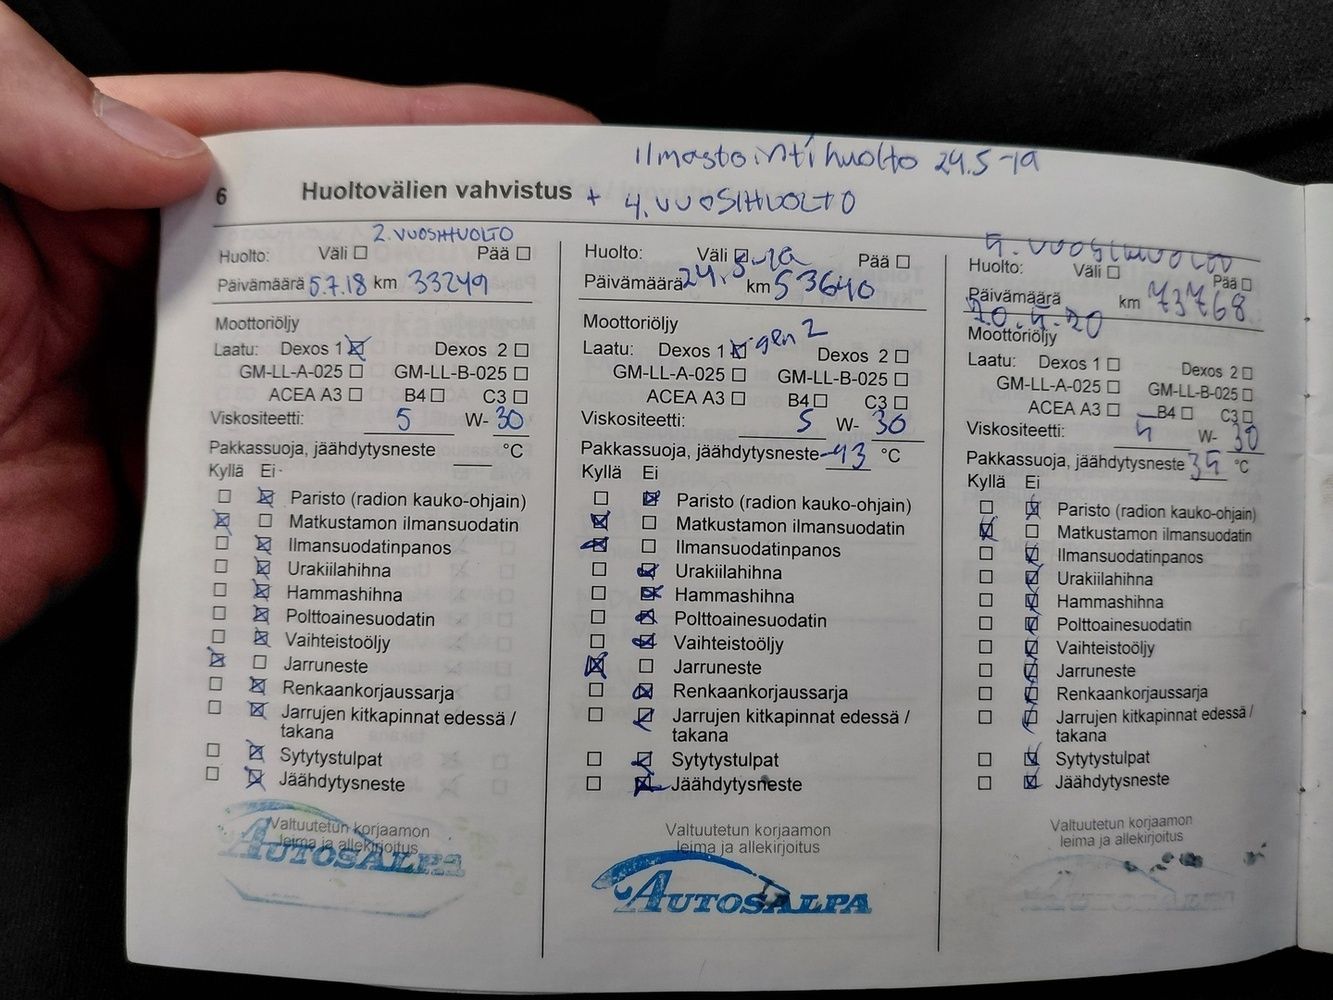 Ilmastointihuolto 24.5-19
6 Huoltovälien vahvistus + 4. VUOSIHUOLTO
2. VUOSIHUOLTO
Huolto: Väli Pää
Päivämäärä 5.7.18 km 33249
Moottoriöljy
Laatu: Dexos 1 Dexos 2
GM-LL-A-025 GM-LL-B-025
ACEA A3 B4 C3
Viskositeetti: 5 W- 30
Pakkassuoja, jäähdytysneste °C
Kyllä Ei
Paristo (radion kauko-ohjain)
Matkustamon ilmansuodatin
Ilmansuodatinpanos
Urakiilahihna
Hammashihna
Polttoainesuodatin
Vaihteistoöljy
Jarruneste
Renkaankorjaussarja
Jarrujen kitkapinnat edessä /
takana
Sytytystulpat
Jäähdytysneste
Valtuutetun korjaamon
leima ja allekirjoitus
AUTOSALPA
Huolto: Väli Pää
Päivämäärä 24.5-19 km 53640
Moottoriöljy
Laatu: Dexos 1 gen 2 Dexos 2
GM-LL-A-025 GM-LL-B-025
ACEA A3 B4 C3
Viskositeetti: 5 W- 30
Pakkassuoja, jäähdytysneste -43 °C
Kyllä Ei
Paristo (radion kauko-ohjain)
Matkustamon ilmansuodatin
Ilmansuodatinpanos
Urakiilahihna
Hammashihna
Polttoainesuodatin
Vaihteistoöljy
Jarruneste
Renkaankorjaussarja
Jarrujen kitkapinnat edessä /
takana
Sytytystulpat
Jäähdytysneste
Valtuutetun korjaamon
leima ja allekirjoitus
AUTOSALPA
5. vuosihuolto
Huolto: Väli Pää
Päivämäärä km 73768
20.5.20
Moottoriöljy
Laatu: Dexos 1 Dexos 2
GM-LL-A-025 GM-LL-B-025
ACEA A3 B4 C3
Viskositeetti: 5 W- 30
Pakkassuoja, jäähdytysneste 35 °C
Kyllä Ei
Paristo (radion kauko-ohjain)
Matkustamon ilmansuodatin
Ilmansuodatinpanos
Urakiilahihna
Hammashihna
Polttoainesuodatin
Vaihteistoöljy
Jarruneste
Renkaankorjaussarja
Jarrujen kitkapinnat edessä /
takana
Sytytystulpat
Jäähdytysneste
Valtuutetun korjaamon
leima ja allekirjoitus